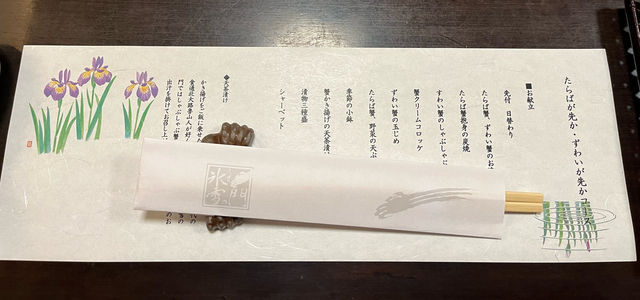 たらばが先か・ずわいが先かコース
■お献立
先付 日替わり
たらば蟹、ずわい蟹のお
たらば蟹抱身の炭焼
すわい蟹のしゃぶしゃぶ
蟹クリームコロッケ
ずわい蟹の玉じめ
たらば蟹、野菜の天ぷ
季節の小鉢
蟹かき揚げの天茶漬
漬物三種盛
シャーベット
◆天茶漬け
かき揚げをご飯に乗せた
食通北大路魯山人が好
門ではしゃぶしゃぶ蟹
出汁を掛けてお召し上